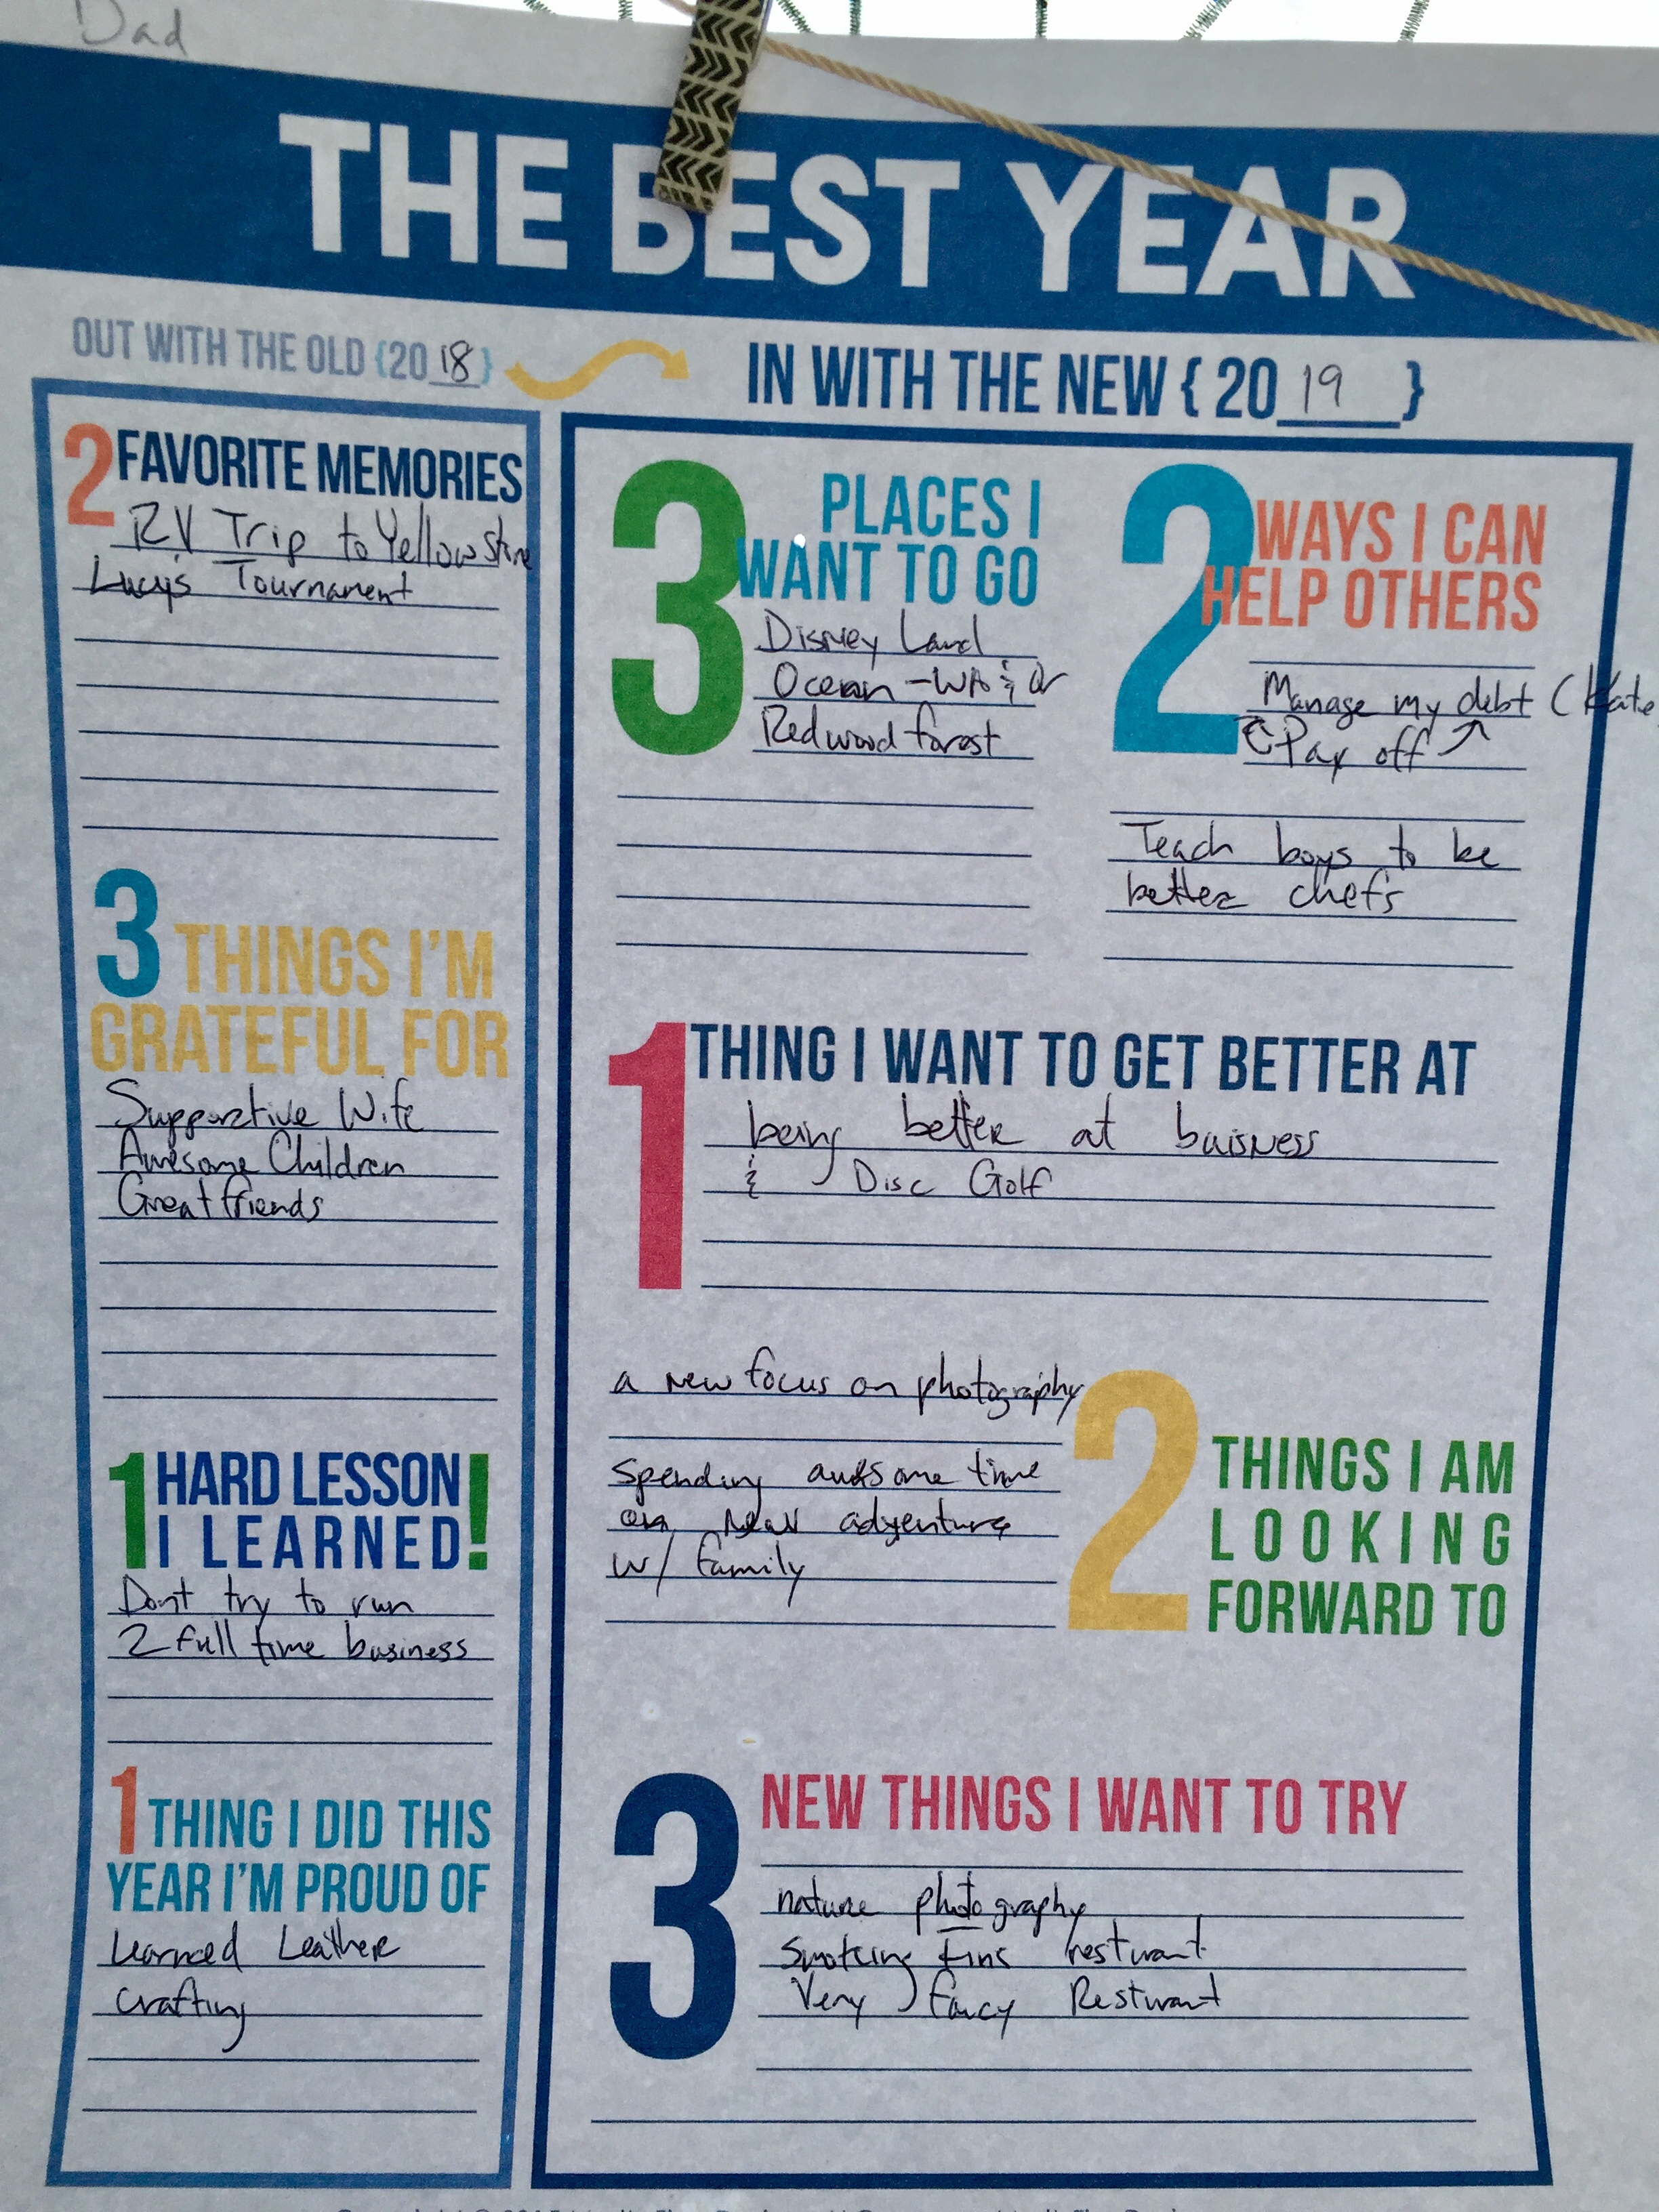 Dad
THE BEST YEAR
OUT WITH THE OLD {2018}
IN WITH THE NEW { 2019 }
2 FAVORITE MEMORIES
RV Trip to Yellowstone
Lucy's Tournament
3 THINGS I'M
GRATEFUL FOR
Supportive Wife
Awesome Children
Great friends
1 HARD LESSON
I LEARNED!
Dont try to run
2 full time business
1 THING I DID THIS
YEAR I'M PROUD OF
Learned Leather
crafting
3 PLACES I
WANT TO GO
Disney Land
Ocean - WA & Or
Redwood forest
2 WAYS I CAN
HELP OTHERS
Manage my debt (Kate
Pay off
Teach boys to be
better chefs
1 THING I WANT TO GET BETTER AT
being better at buisness
& Disc Golf
a new focus on photography
Spending awesome time
on new adventure
w/ family
2 THINGS I AM
LOOKING
FORWARD TO
3 NEW THINGS I WANT TO TRY
nature photography
Smoking fins resturant
Very fancy Resturant